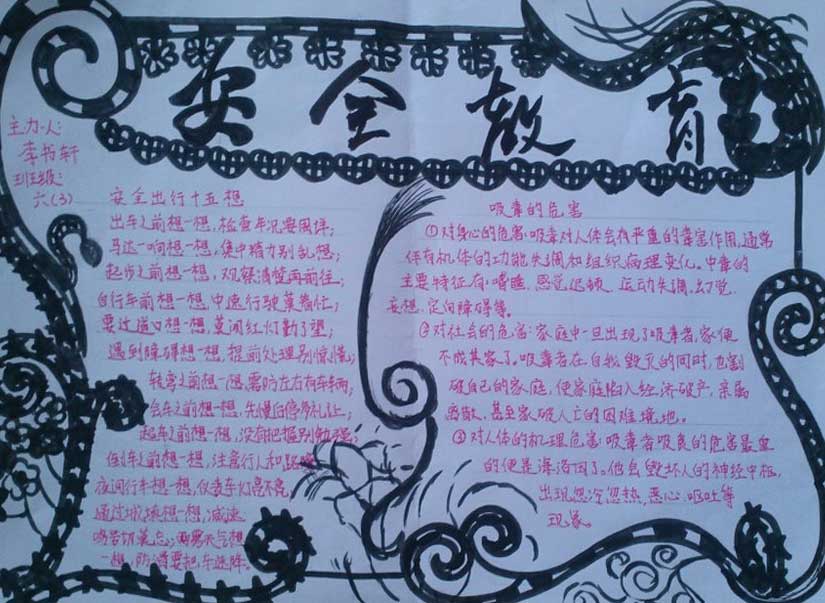 安全教育
主办人:
李书轩
班级:
六(3)
安全出行十五想
出车之前想一想,检查车况要周详;
马达一响想一想,集中精力别乱想;
起步之前想一想,观察清楚再前往;
自行车前想一想,中速行驶莫着忙;
要过道口想一想,莫闯红灯勤了望;
遇到障碍想一想,提前处理别惊慌;
转弯之前想一想,需防左右有车辆;
会车之前想一想,先慢后停多礼让;
超车之前想一想,没有把握别勉强;
倒车之前想一想,注意行人和路
夜间行车想一想,仪表车灯亮不亮;
通过城镇想一想,减速
鸣号切莫忘;雨雾天气想
一想,防滑要把车速降。
吸毒的危害
①对身心的危害:吸毒对人体会有严重的毒害作用,通常
伴有机体的功能失调和组织病理变化。中毒的
主要特征有:嗜睡、感觉迟顿、运动失调、幻觉、
妄想、定向障碍等。
②对社会的危害:家庭中一旦出现了吸毒者,家便
不成其家了。吸毒者在自我毁灭的同时,也割
破自己的家庭,使家庭陷入经济破产,亲属
离散,甚至家破人亡的困难境地。
③对人体的机理危害:吸毒者吸食的危害最
的便是海洛因了。他会毁坏人的神经中枢,
出现忽冷忽热,恶心,呕吐等
现象。